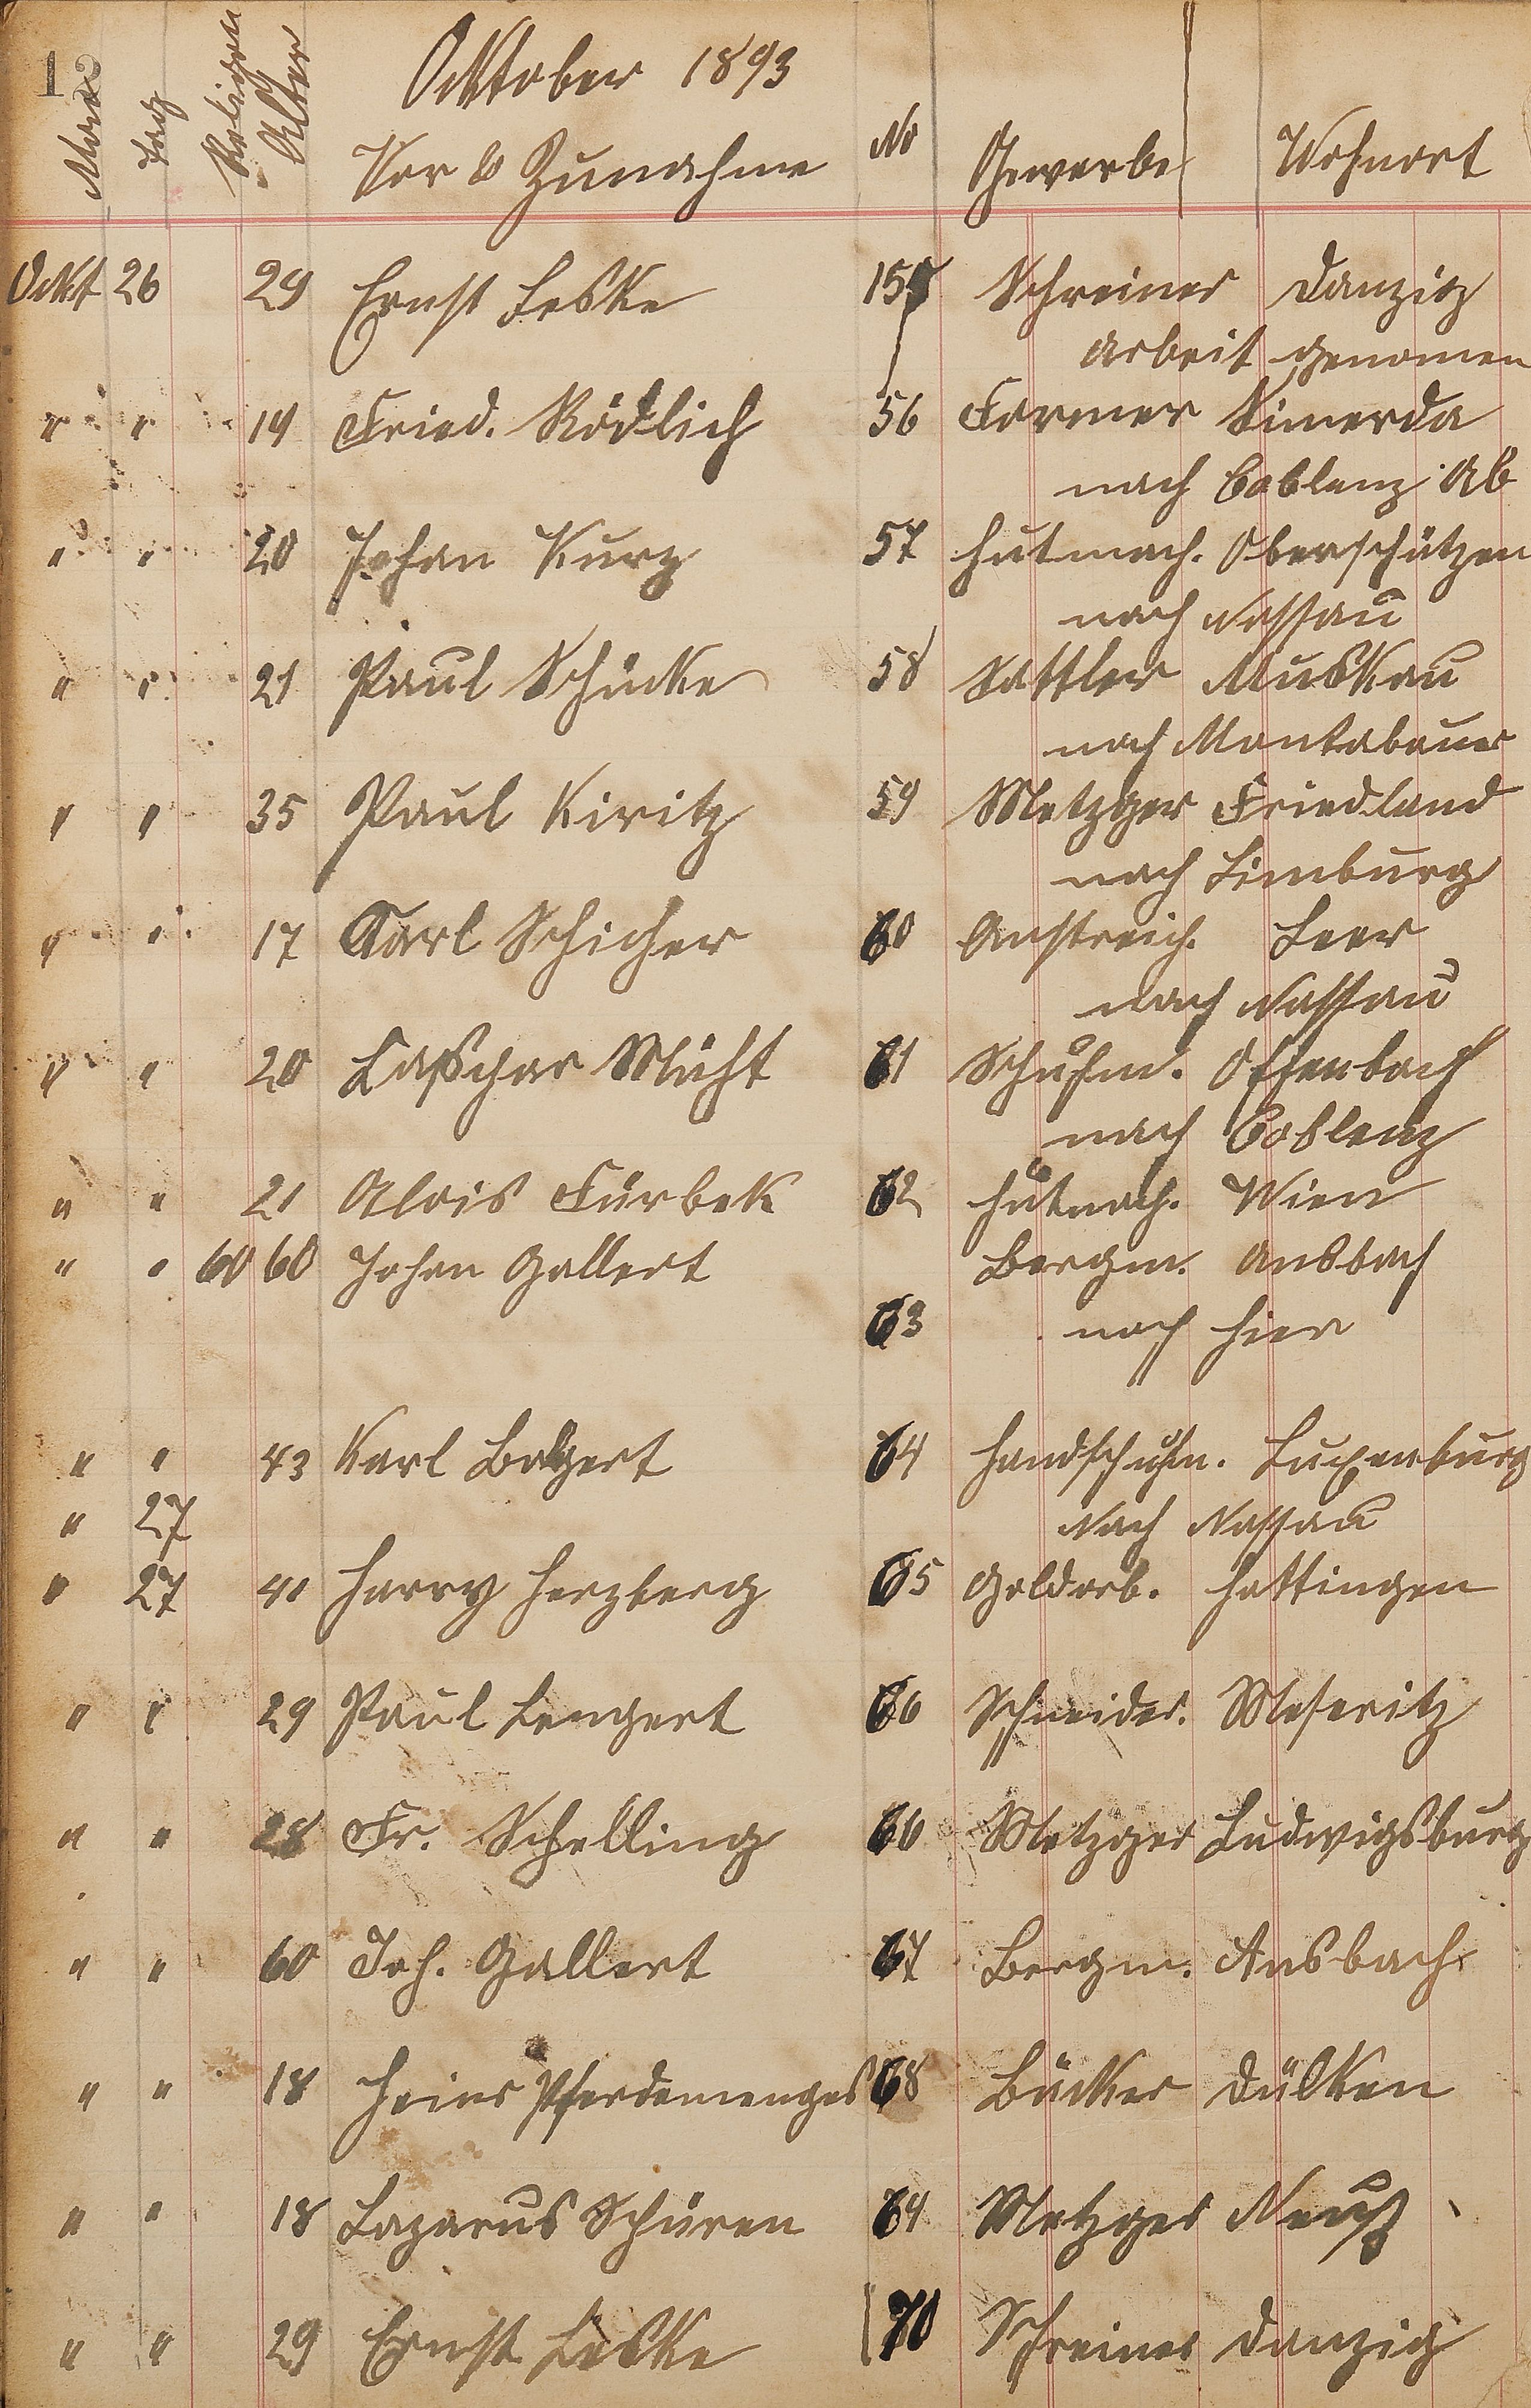 12
Oktober 1893
Mon Tag Religion Alter Vor & Zunahme No Gewerbe Wohnort
Ockt 26 29 Ernst Leske 155 Schreiner Danzig
Arbeit genomen
" " 19 Fried. Rödlich 56 Former Simerda
nach Coblenz Ab
" " 20 Johan Kurz 57 Hutmach. Oberschützen
nach Nassau
" " 21 Paul Schücke 58 Sattler Muskau
nach Montabauer
" " 35 Paul Kiritz 59 Metzger Friedland
nach Limburg
" " 17 Karl Schicher 60 Anstreich. Leer
nach Nassau
" " 20 Müht 61 Schuhm. Offenbach
nach Coblenz
" " 21 Alois Fürbek 62 Hutmach. Wien
" " 60 60 Johan Gallert Bergm. Ansbach
63 nach hier
" " 43 Karl Bolgert 64 Handschuhm. Luxenburg
" 27 Nach Nassau
" 27 41 Harry Herzberg 65 Goldarb. Hattingen
" " 29 Paul Lengert 66 Schneider. Meseritz
" " 28 Fr. Schelling 66 Metzger Ludwigsburg
" " 60 Joh. Gallert 67 Bergm. Ansbach
" " 18 Heinr Pferdemenges 68 Bäcker Dülken
" " 18 Lazarus Schüren 69 Metzger Neuß
" " 29 Ernst Leske 170 Schreiner Danzig